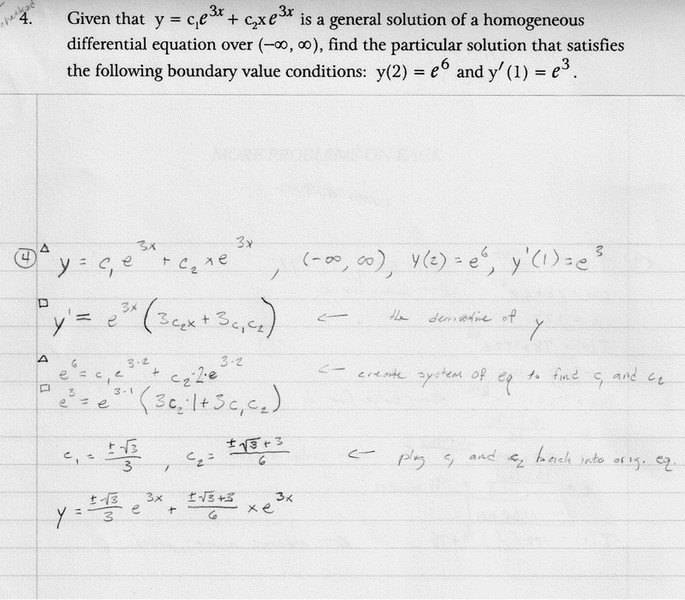 4. Given that y = c₁e³ˣ + c₂xe³ˣ is a general solution of a homogeneous
differential equation over (−∞, ∞), find the particular solution that satisfies
the following boundary value conditions: y(2) = e⁶ and y′(1) = e³.
④ △ y = c₁e³ˣ + c₂xe³ˣ, (-∞, ∞), y(2) = e⁶, y'(1) = e³
□ y' = e³ˣ(3c₂x + 3c₁c₂) ← the derivative of y
△ e⁶ = c₁e³·² + c₂·2·e³·² ← create system of eq to find c₁ and c₂
□ e³ = e³·¹(3c₂·1 + 3c₁c₂)
c₁ = ±√3/3, c₂ = ±√3+3/6 ← plug c₁ and c₂ back into orig. eq.
y = ±√3/3 e³ˣ + ±√3+3/6 xe³ˣ